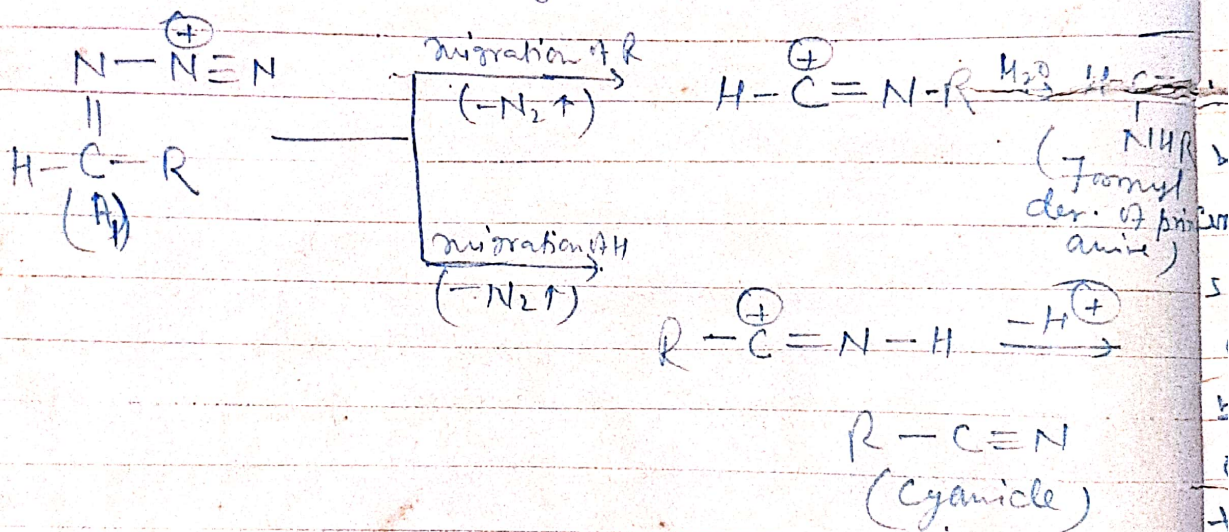 N—N⊕≡N
||
H—C—R
(A₁)
migration of R
(-N₂↑)
H—C⊕=N-R H₂O H-C=
NHR
(Formyl
der. of
amine)
migration of H
(-N₂↑)
R—C⊕=N—H -H⊕
R—C≡N
(Cyanide)